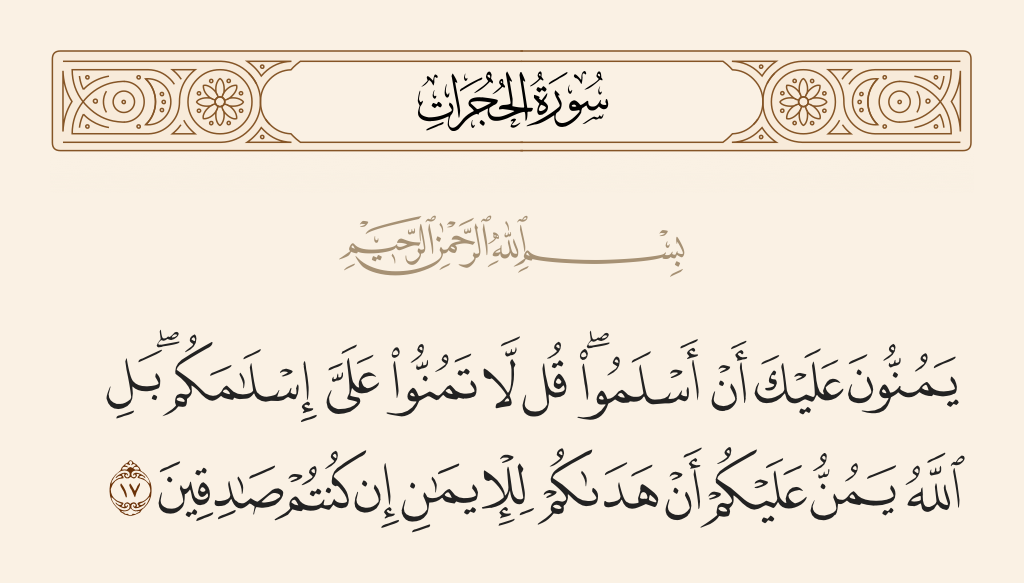 سُورَةُ الحُجُرَاتِ
بِسْمِ ٱللَّهِ ٱلرَّحْمَٰنِ ٱلرَّحِيمِ
يَمُنُّونَ عَلَيْكَ أَنْ أَسْلَمُوا۟ ۖ قُل لَّا تَمُنُّوا۟ عَلَىَّ إِسْلَٰمَكُم ۖ بَلِ
ٱللَّهُ يَمُنُّ عَلَيْكُمْ أَنْ هَدَىٰكُمْ لِلْإِيمَٰنِ إِن كُنتُمْ صَٰدِقِينَ ١٧